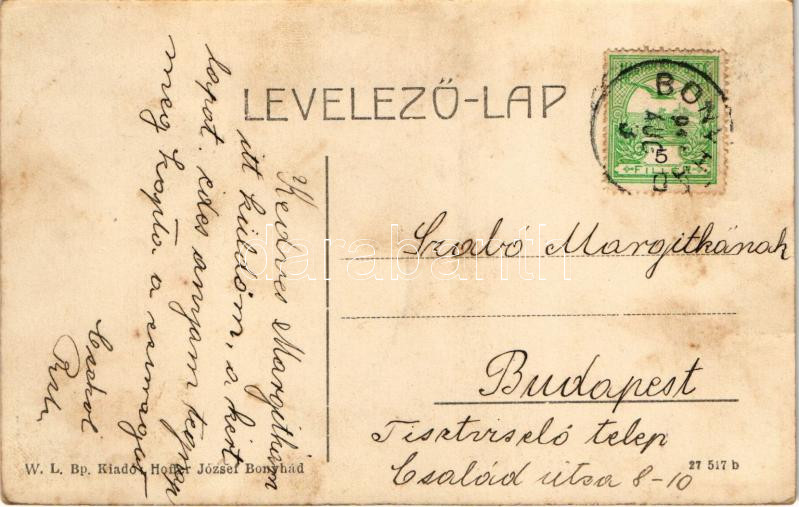 LEVELEZŐ-LAP
BONYHÁD
5
FILLÉR
Kedves Margitkám
itt küldöm, a kért
lapot. edes anyam tegnap
meg kapta a csomagot
Csókol
Szabó Margitkának
Budapest
Tisztviselő telep
Család utsa 8-10
W. L. Bp. Kiadó, Hoffer József Bonyhád
27 517 b
darabanth